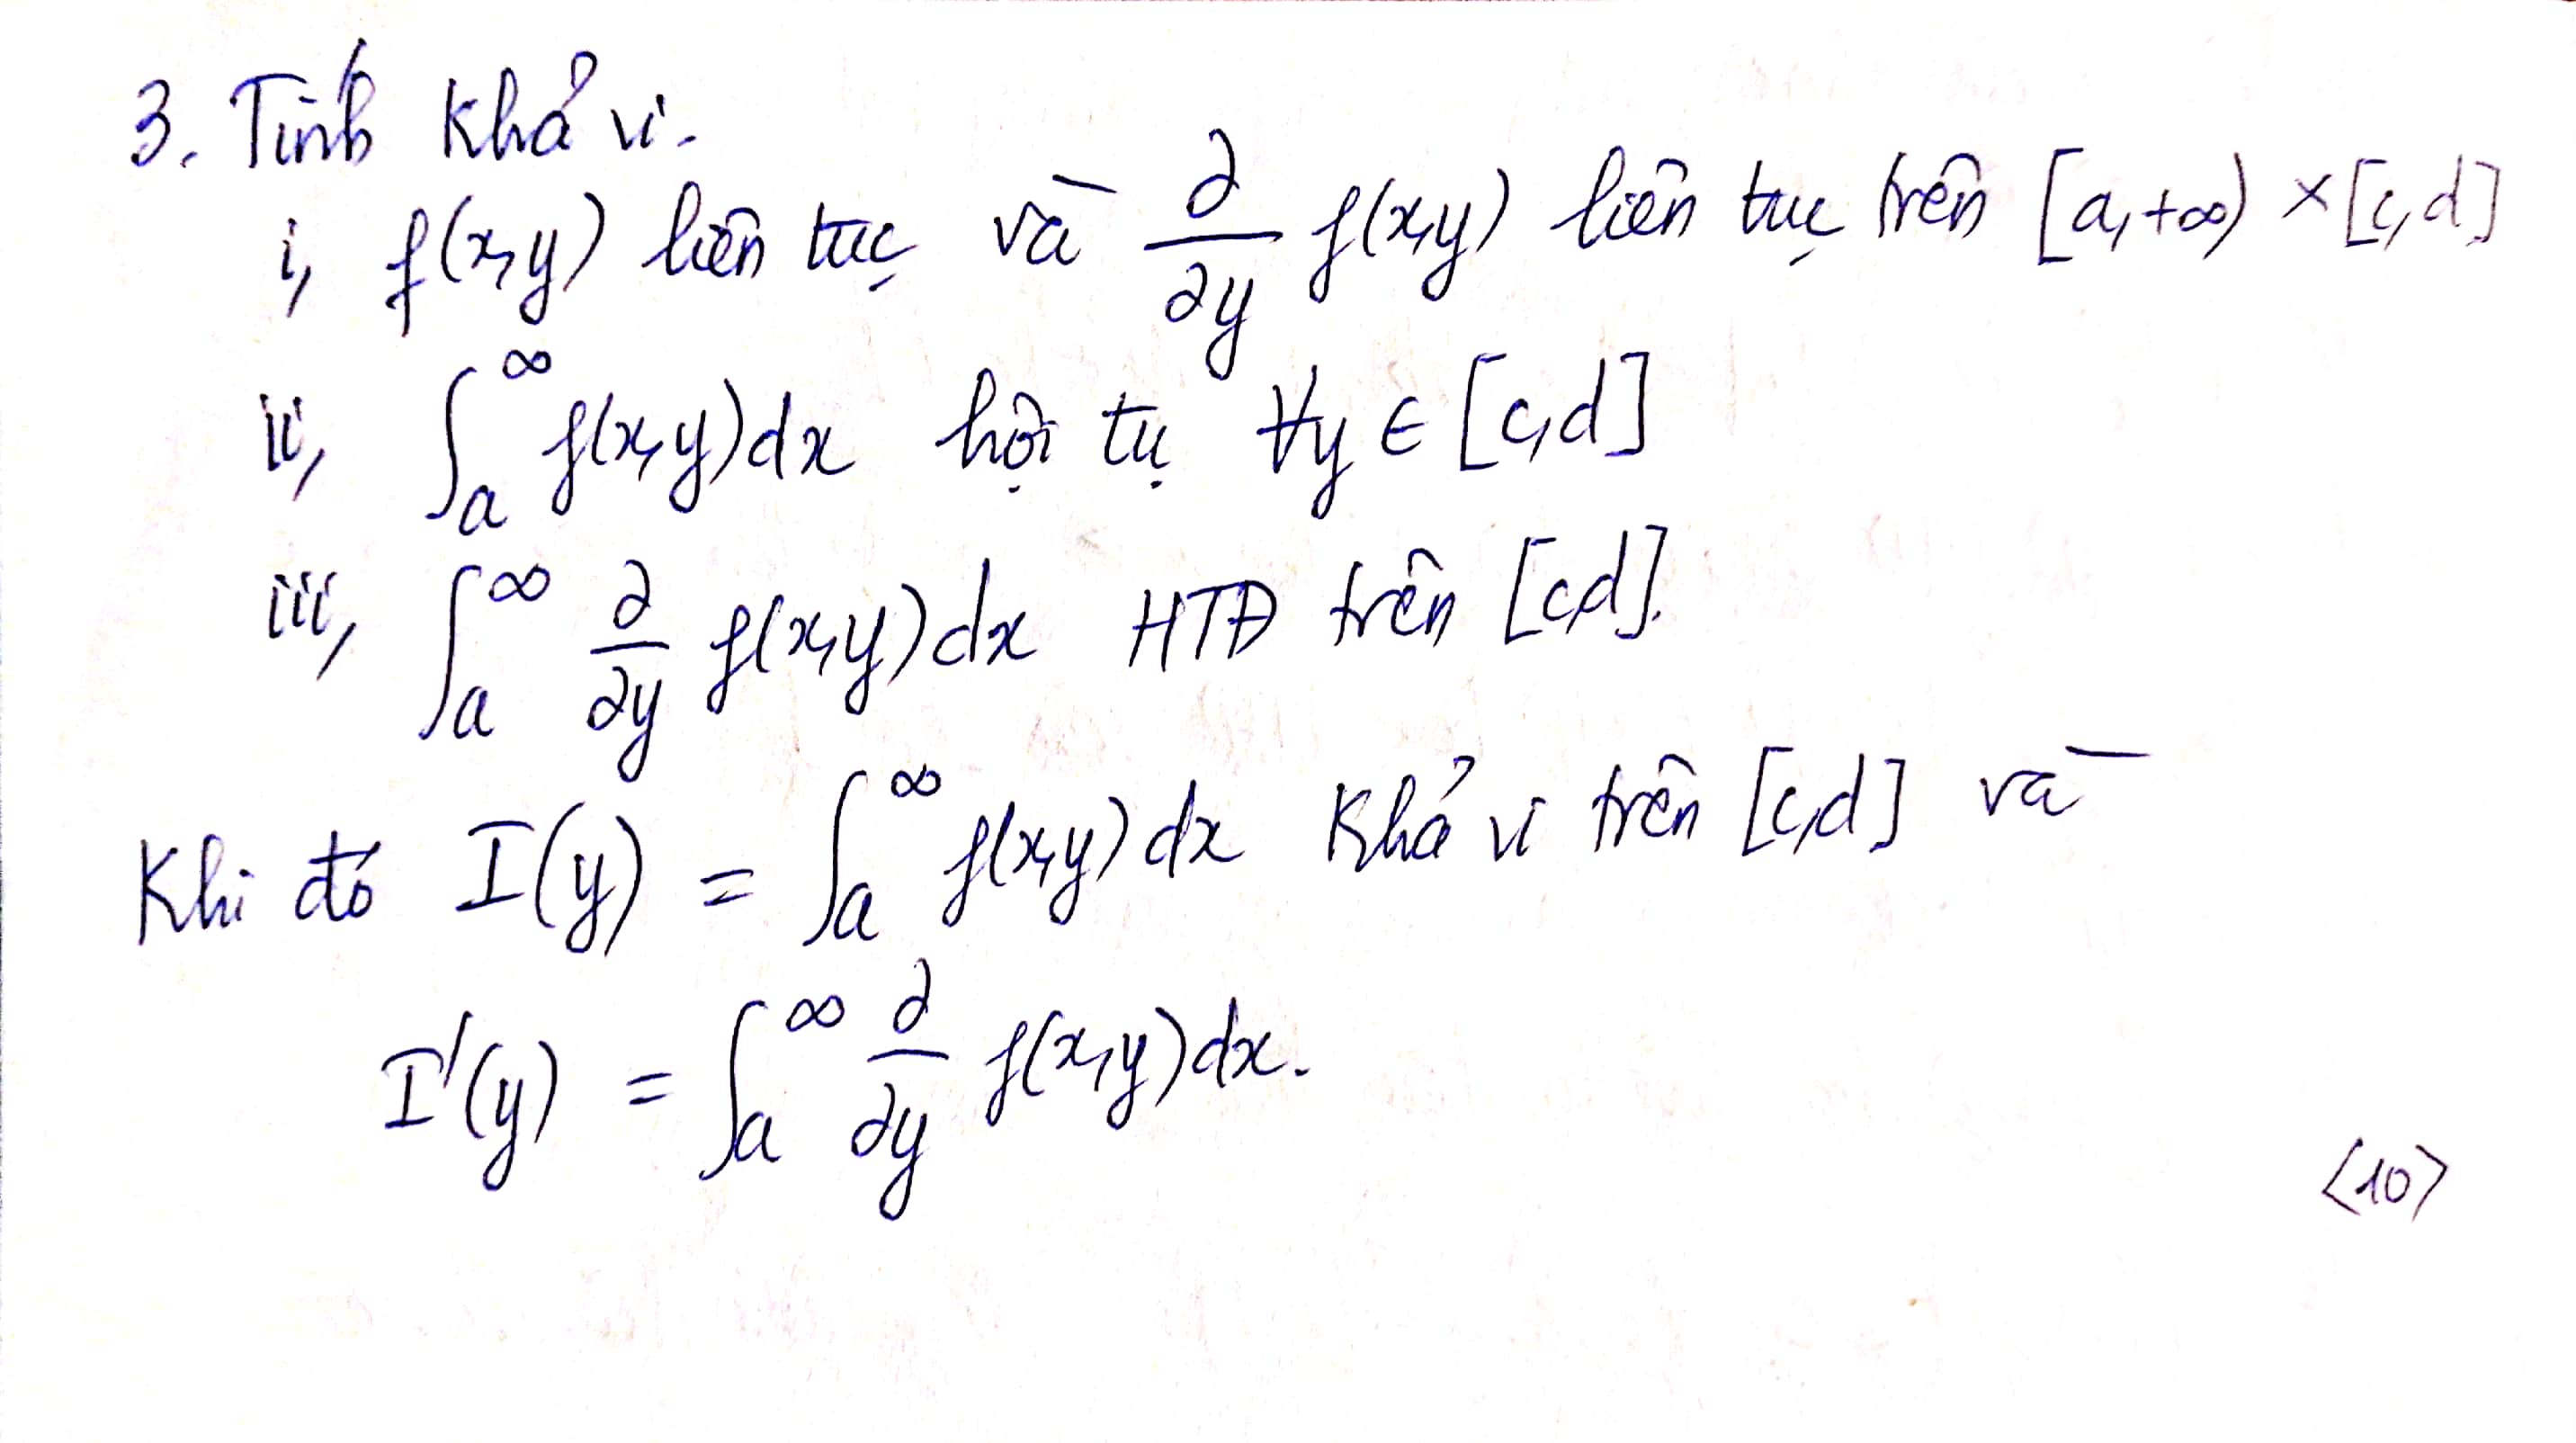 3. Tính khả vi.
i, f(x,y) liên tục và ∂/∂y f(x,y) liên tục trên [a,+∞) × [c,d]
ii, ∫_a^∞ f(x,y)dx hội tụ ∀y ∈ [c,d]
iii, ∫_a^∞ ∂/∂y f(x,y)dx HTĐ trên [c,d].
Khi đó I(y) = ∫_a^∞ f(x,y)dx khả vi trên [c,d] và
I'(y) = ∫_a^∞ ∂/∂y f(x,y)dx.
<10>